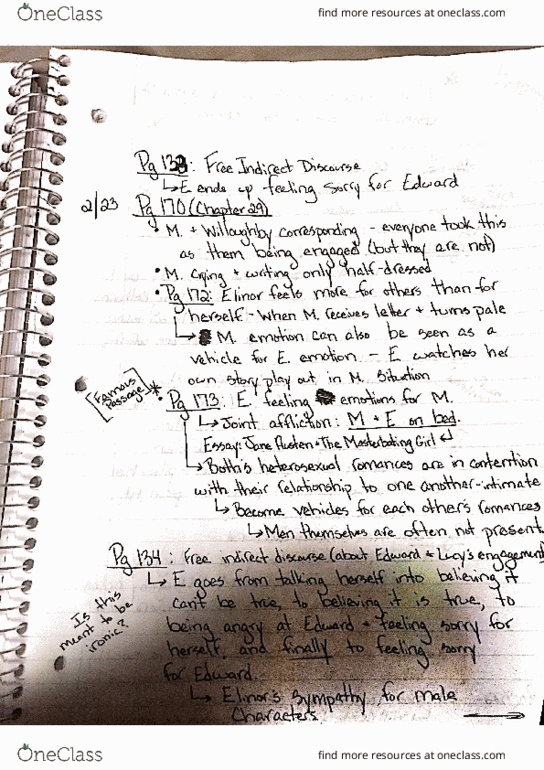 OneClass
find more resources at oneclass.com
Pg 133: Free Indirect Discourse
↳E ends up feeling sorry for Edward
2/23 Pg 170 (Chapter 29)
M. + Willoughby corresponding - everyone took this
as them being engaged (but they are not)
• M. crying + writing only half-dressed
• Pg 172: Elinor feels more for others than for
herself - When M. receives letter + turns pale
↳ M. emotion can also be seen as a
vehicle for E. emotion. - E watches her
own story play out in M. situation
[Famous Passage] * • Pg 173: E. feeling emotions for M.
↳ Joint affliction: M + E on bed.
Essay: Jane Austen + The Masturbating Girl ↵
↳ Both's heterosexual romances are in contention
with their relationship to one another - intimate
↳ Become vehicles for each other's romances
↳ Men themselves are often not present
Pg 134: Free indirect discourse (about Edward + Lucy's engagement)
↳ E goes from talking herself into believing it
can't be true, to believing it is true, to
being angry at Edward + feeling sorry for
herself, and finally to feeling sorry
for Edward.
Is this
meant to be
ironic?
↳ Elinor's sympathy for male
characters.
OneClass
find more resources at oneclass.com